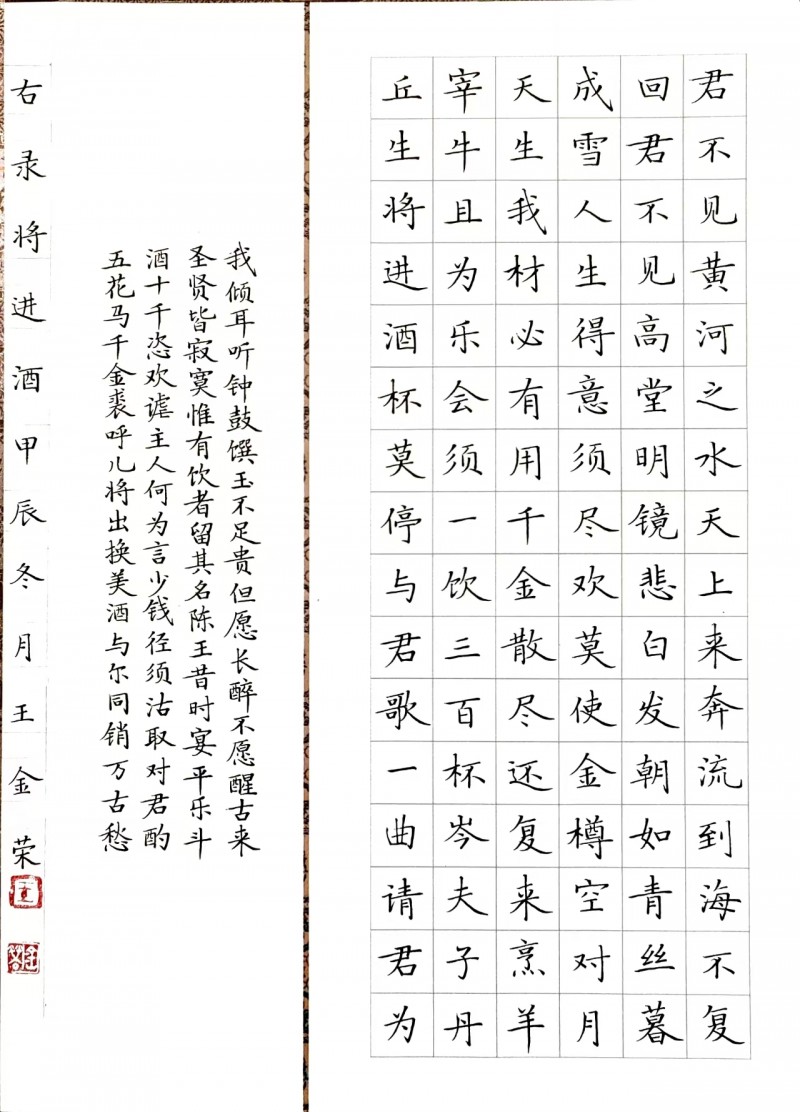 君不见黄河之水天上来奔流到海不复
回君不见高堂明镜悲白发朝如青丝暮
成雪人生得意须尽欢莫使金樽空对月
天生我材必有用千金散尽还复来烹羊
宰牛且为乐会须一饮三百杯岑夫子丹
丘生将进酒杯莫停与君歌一曲请君为
我倾耳听钟鼓馔玉不足贵但愿长醉不愿醒古来
圣贤皆寂寞惟有饮者留其名陈王昔时宴平乐斗
酒十千恣欢谑主人何为言少钱径须沽取对君酌
五花马千金裘呼儿将出换美酒与尔同销万古愁
右录将进酒甲辰冬月王金荣